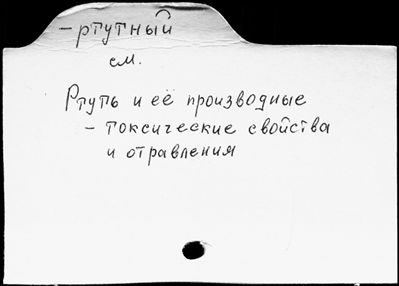 - ртутный
см.
Ртуть и её производные
- токсические свойства
и отравления